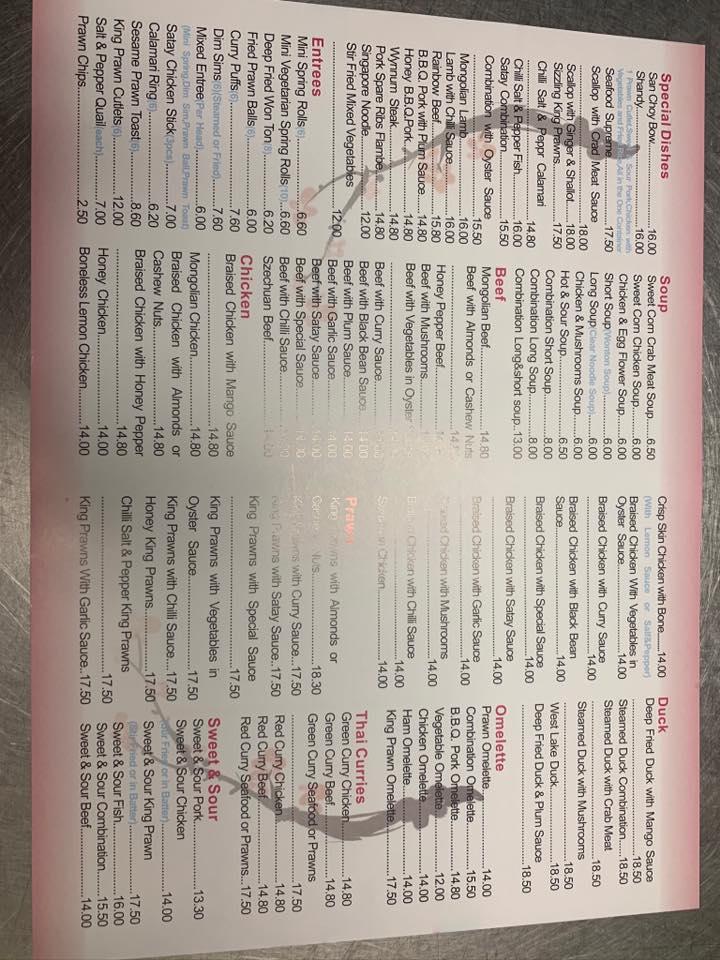 Special Dishes
San Choy Bow..................16.00
Shandy............................16.00
Seafood Supreme...............17.50
Scallop with Crad Meat Sauce
.......................................18.00
Scallop with Ginger & Shallot....18.00
Sizzling King Prawns...........17.50
Chilli Salt & Peppr Calamari
.......................................14.80
Chilli Salt & Pepper Fish.......16.00
Satay Combination.............15.50
Combination with Oyster Sauce
.......................................15.50
Mongolian Lamb................16.00
Lamb with Chilli Sauce.........16.00
Rainbow Beef....................15.80
B.B.Q. Pork with Plum Sauce....14.80
Honey B.B.Q.Pork..............14.80
Wynnum Steak..................14.80
Pork Spare Ribs Flambe.......14.80
Singapore Noodle..............12.00
Stir Fried Mixed Vegetables
.......................................12.00
Entrees
Mini Spring Rolls(6)............6.60
Mini Vegetarian Spring Rolls(10)..6.60
Deep Fried Won Ton(8).......6.20
Fried Prawn Balls(6)...........6.00
Curry Puffs(6)...................7.60
Dim Sims(6)(Steamed or Fried)....7.60
Mixed Entree(Per Head).......6.00
(Mini Spring,Dim Sim,Prawn Ball,Prawn Toast)
Satay Chicken Stick(3pcs)....7.00
Calamari Ring(6)................6.20
Sesame Prawn Toast(6).......8.60
King Prawn Cutlets(6).........12.00
Salt & Pepper Quail(each)....7.00
Prawn Chips.....................2.50
Soup
Sweet Corn Crab Meat Soup....6.50
Sweet Corn Chicken Soup....6.00
Chicken & Egg Flower Soup...6.00
Short Soup(Wonton Soup)....6.00
Long Soup(Clear Noodle Soup)..6.00
Chicken & Mushrooms Soup...6.00
Hot & Sour Soup................6.50
Combination Short Soup......8.00
Combination Long Soup.......8.00
Combination Long&short soup..13.00
Beef
Mongolian Beef.................14.80
Beef with Almonds or Cashew Nuts
Honey Pepper Beef
Beef with Mushrooms
Beef with Vegetables in Oyster
Beef with Curry Sauce
Beef with Black Bean Sauce...14.00
Beef with Plum Sauce.........14.00
Beef with Garlic Sauce........14.00
Beef with Satay Sauce........14.00
Beef with Special Sauce......14.00
Beef with Chilli Sauce
Szechuan Beef
Chicken
Braised Chicken with Mango Sauce
.......................................14.80
Mongolian Chicken.............14.80
Braised Chicken with Almonds or
Cashew Nuts....................14.80
Braised Chicken with Honey Pepper
.......................................14.80
Honey Chicken..................14.00
Boneless Lemon Chicken......14.00
Crisp Skin Chicken with Bone....14.00
(With Lemon Sauce or Salt&Pepper)
Braised Chicken With Vegetables in
Oyster Sauce....................14.00
Braised Chicken with Curry Sauce
.......................................14.00
Braised Chicken with Black Bean
Sauce.............................14.00
Braised Chicken with Special Sauce
.......................................14.00
Braised Chicken with Satay Sauce
.......................................14.00
Braised Chicken with Garlic Sauce
.......................................14.00
Braised Chicken with Mushrooms
.......................................14.00
Braised Chicken with Chilli Sauce
.......................................14.00
Chicken............................14.00
Prawn
King Prawns with Almonds or
Cashew Nuts....................18.30
King Prawns with Curry Sauce..17.50
King Prawns with Satay Sauce..17.50
King Prawns with Special Sauce
.......................................17.50
King Prawns with Vegetables in
Oyster Sauce....................17.50
King Prawns with Chilli Sauce....17.50
Honey King Prawns............17.50
Chilli Salt & Pepper King Prawns
.......................................17.50
King Prawns With Garlic Sauce..17.50
Duck
Deep Fried Duck with Mango Sauce
.......................................18.50
Steamed Duck Combination....18.50
Steamed Duck with Crab Meat
.......................................18.50
Steamed Duck with Mushrooms
.......................................18.50
West Lake Duck.................18.50
Deep Fried Duck & Plum Sauce
.......................................18.50
Omelette
Prawn Omelette.................14.00
Combination Omelette.........15.50
B.B.Q. Pork Omelette..........14.80
Vegetable Omelette............12.00
Chicken Omelette...............14.00
Ham Omelette...................14.00
King Prawn Omelette...........17.50
Thai Curries
Green Curry Chicken...........14.80
Green Curry Beef...............14.80
Green Curry Seafood or Prawns
.......................................17.50
Red Curry Chicken..............14.80
Red Curry Beef..................14.80
Red Curry Seafood or Prawns...17.50
Sweet & Sour
Sweet & Sour Pork..............13.30
Sweet & Sour Chicken
(Stir Fried or in Batter)..........14.00
Sweet & Sour King Prawn
(Stir Fried or in Batter)..........17.50
Sweet & Sour Fish..............16.00
Sweet & Sour Combination....15.50
Sweet & Sour Beef..............14.00